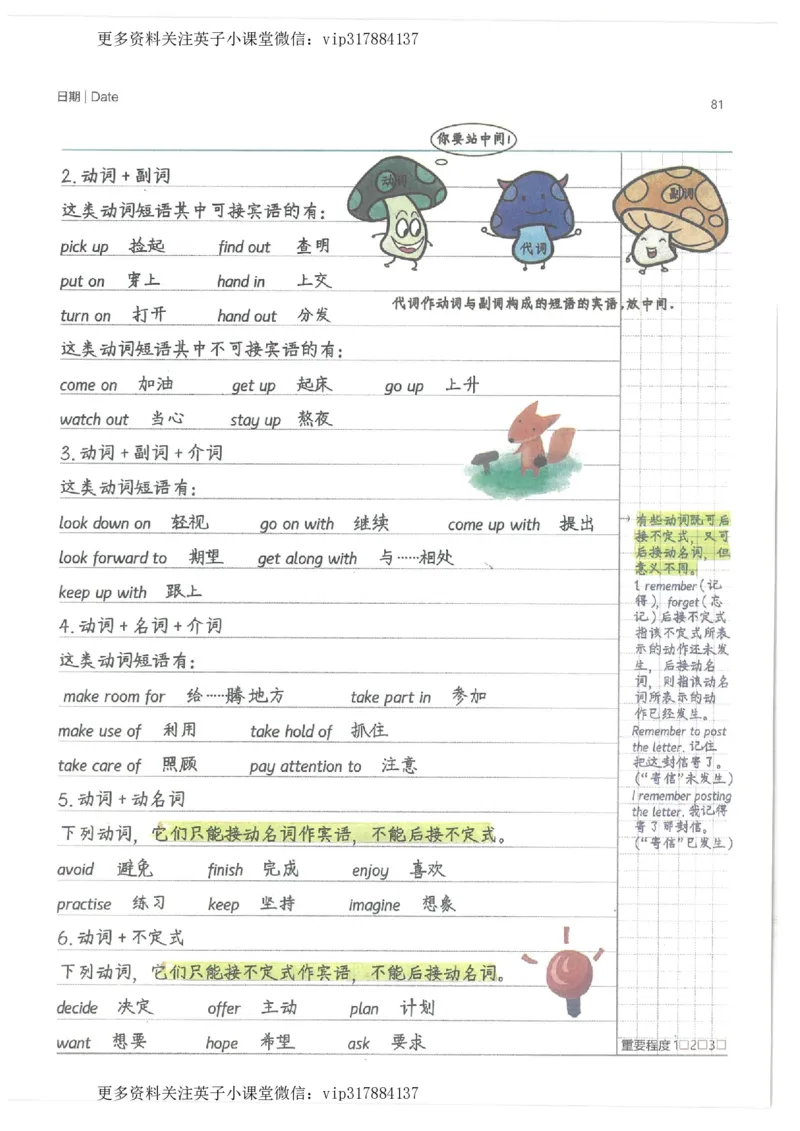 更多资料关注英子小课堂微信：vip317884137
日期 | Date
81
你要站中间！
动词
代词
副词
2. 动词 + 副词
这类动词短语其中可接宾语的有：
pick up 捡起 find out 查明
put on 穿上 hand in 上交
代词作动词与副词构成的短语的宾语，放中间．
turn on 打开 hand out 分发
这类动词短语其中不可接宾语的有：
come on 加油 get up 起床 go up 上升
watch out 当心 stay up 熬夜
3. 动词 + 副词 + 介词
这类动词短语有：
look down on 轻视 go on with 继续 come up with 提出
look forward to 期望 get along with 与……相处
keep up with 跟上
4. 动词 + 名词 + 介词
这类动词短语有：
make room for 给……腾地方 take part in 参加
make use of 利用 take hold of 抓住
take care of 照顾 pay attention to 注意
5. 动词 + 动名词
下列动词，它们只能接动名词作宾语，不能后接不定式。
avoid 避免 finish 完成 enjoy 喜欢
practise 练习 keep 坚持 imagine 想象
6. 动词 + 不定式
下列动词，它们只能接不定式作宾语，不能后接动名词。
decide 决定 offer 主动 plan 计划
want 想要 hope 希望 ask 要求
→ 有些动词既可后
接不定式，又可
后接动名词，但
意义不同。
1. remember（记
得），forget（忘
记）后接不定式
指该不定式所表
示的动作还未发
生，后接动名
词，则指该动名
词所表示的动
作已经发生。
Remember to post
the letter. 记住
把这封信寄了。
（“寄信”未发生）
I remember posting
the letter. 我记得
寄了那封信。
（“寄信”已发生）
重要程度 1□2□3□
更多资料关注英子小课堂微信：vip317884137